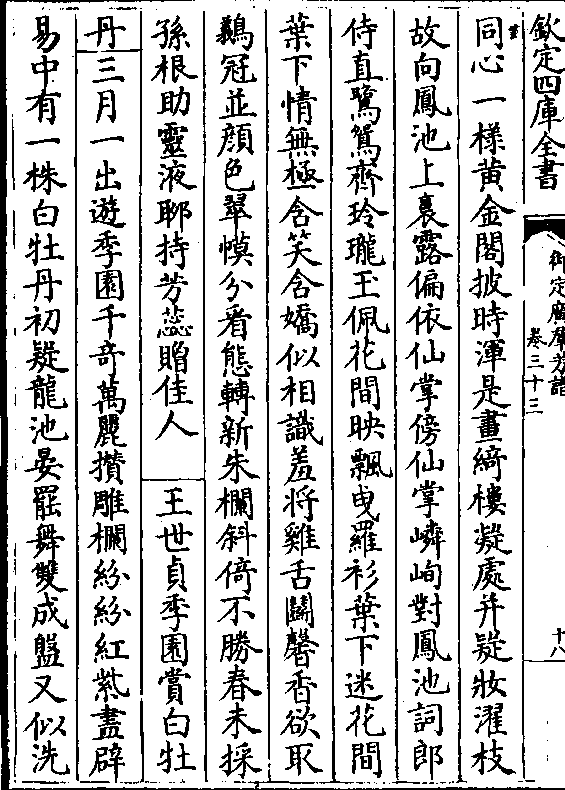 欽定四庫全書
御定廣羣芳譜
卷三十三
十八
同心一様黄金閣披時渾是畫綺樓凝處并疑妝濯枝
故向鳳池上裛露偏依仙掌傍仙掌嶙峋對鳳池詞郎
侍直鷺鴛齊玲瓏玉佩花間映飄曵羅衫葉下迷花間
葉下情無極含笑含嬌似相識羞將雞舌鬭馨香欲取
鷴冠並顔色翠幙分看態轉新朱欄斜倚不勝春未採
孫根助靈液聊持芳蕊贈佳人 王世貞季園賞白牡
丹三月一出遊季園千奇萬麗攢雕欄紛紛紅紫盡辟
易中有一株白牡丹初疑龍池晏罷舞雙成盤又似洗